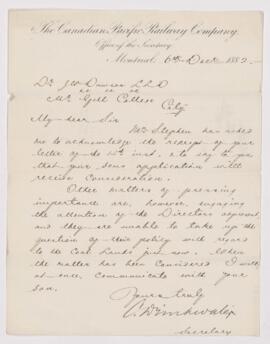 The Canadian Pacific Railway Company.
Office of the Secretary
Montreal, 6th Decr 1882.
Dr J W Dawson LL.D
McGill College
City
My dear Sir
Mr Stephen has asked
me to acknowledge the receipt of your
letter of inst, & to say to you
that your sons application will
receive consideration.
Other matters of pressing
importance are, however, engaging
the attention of the Directors at present,
and they are unable to take up the
question of their policy with regard
to the Coal lands just now. When
the matter has been considered I will
at once, communicate with your
son.
Yours truly
C Drinkwater
Secretary